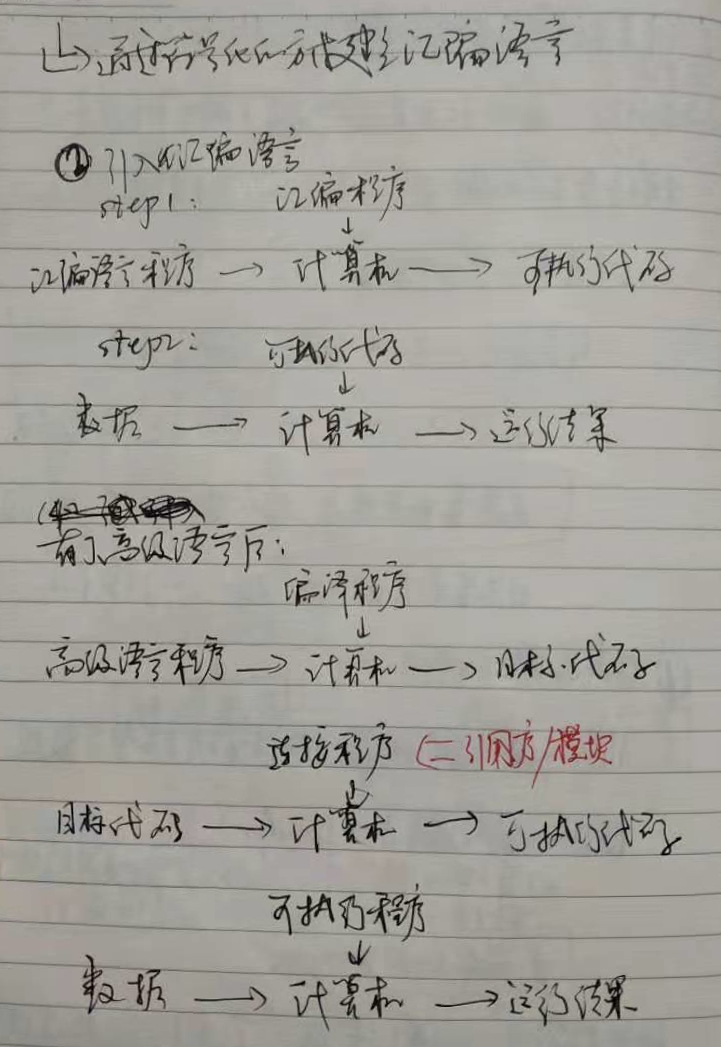 ↳通过符号化的方法建立汇编语言
② 引入汇编语言
step1: 汇编程序
↓
汇编语言程序 → 计算机 → 可执行代码
step2: 可执行代码
↓
数据 → 计算机 → 运行结果
有了高级语言后:
编译程序
↓
高级语言程序 → 计算机 → 目标代码
连接程序 (二引用方/模块
↓
目标代码 → 计算机 → 可执行代码
可执行程序
↓
数据 → 计算机 → 运行结果